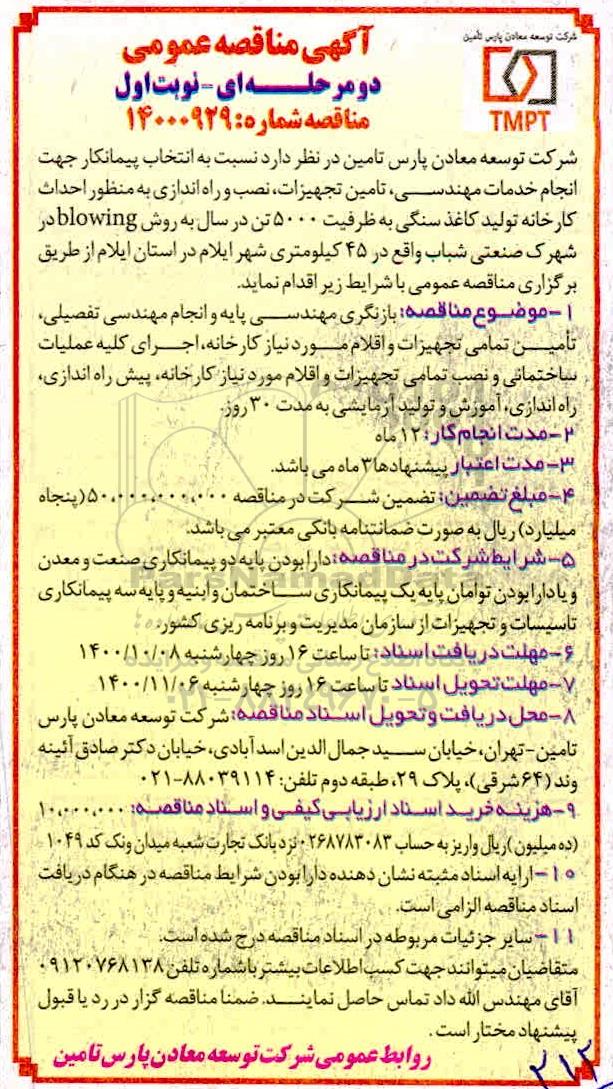 شرکت توسعه معادن پارس تأمین
TMPT
آگهی مناقصه عمومی
دو مرحله ای - نوبت اول
مناقصه شماره: ۱۴۰۰۰۹۲۹
شرکت توسعه معادن پارس تامین در نظر دارد نسبت به انتخاب پیمانکار جهت
انجام خدمات مهندسی، تامین تجهیزات، نصب و راه اندازی به منظور احداث
کارخانه تولید کاغذ سنگی به ظرفیت ۵۰۰۰ تن در سال به روش blowing در
شهرک صنعتی شباب واقع در ۴۵ کیلومتری شهر ایلام در استان ایلام از طریق
برگزاری مناقصه عمومی با شرایط زیر اقدام نماید.
۱- موضوع مناقصه: بازنگری مهندسی پایه و انجام مهندسی تفصیلی،
تأمین تمامی تجهیزات و اقلام مورد نیاز کارخانه، اجرای کلیه عملیات
ساختمانی و نصب تمامی تجهیزات و اقلام مورد نیاز کارخانه، پیش راه اندازی،
راه اندازی، آموزش و تولید آزمایشی به مدت ۳۰ روز.
۲- مدت انجام کار: ۱۲ ماه
۳- مدت اعتبار پیشنهادها ۳ ماه می باشد.
۴- مبلغ تضمین: تضمین شرکت در مناقصه ۵۰،۰۰۰،۰۰۰،۰۰۰ (پنجاه
میلیارد) ریال به صورت ضمانتنامه بانکی معتبر می باشد.
۵- شرایط شرکت در مناقصه: دارا بودن پایه دو پیمانکاری صنعت و معدن
و یا دارا بودن توامان پایه یک پیمانکاری ساختمان و ابنیه و پایه سه پیمانکاری
تاسیسات و تجهیزات از سازمان مدیریت و برنامه ریزی کشور.
۶- مهلت دریافت اسناد: تا ساعت ۱۶ روز چهارشنبه ۱۴۰۰/۱۰/۰۸
۷- مهلت تحویل اسناد تا ساعت ۱۶ روز چهارشنبه ۱۴۰۰/۱۱/۰۶
۸- محل دریافت و تحویل اسناد مناقصه: شرکت توسعه معادن پارس
تامین- تهران، خیابان سید جمال الدین اسد آبادی، خیابان دکتر صادق آئینه
وند (۶۴ شرقی)، پلاک ۲۹، طبقه دوم تلفن: ۸۸۰۳۹۱۱۴-۰۲۱
۹- هزینه خرید اسناد ارزیابی کیفی و اسناد مناقصه: ۱۰،۰۰۰،۰۰۰
(ده میلیون) ریال واریز به حساب ۰۲۶۸۷۸۳۰۸۳ نزد بانک تجارت شعبه میدان ونک کد ۱۰۴۹
۱۰- ارایه اسناد مثبته نشان دهنده دارا بودن شرایط مناقصه در هنگام دریافت
اسناد مناقصه الزامی است.
۱۱- سایر جزئیات مربوطه در اسناد مناقصه درج شده است.
متقاضیان میتوانند جهت کسب اطلاعات بیشتر با شماره تلفن ۰۹۱۲۰۷۶۸۱۳۸
آقای مهندس الله داد تماس حاصل نمایند. ضمنا مناقصه گزار در رد یا قبول
پیشنهاد مختار است.
روابط عمومی شرکت توسعه معادن پارس تامین
۲۱۳
ParsNamadData